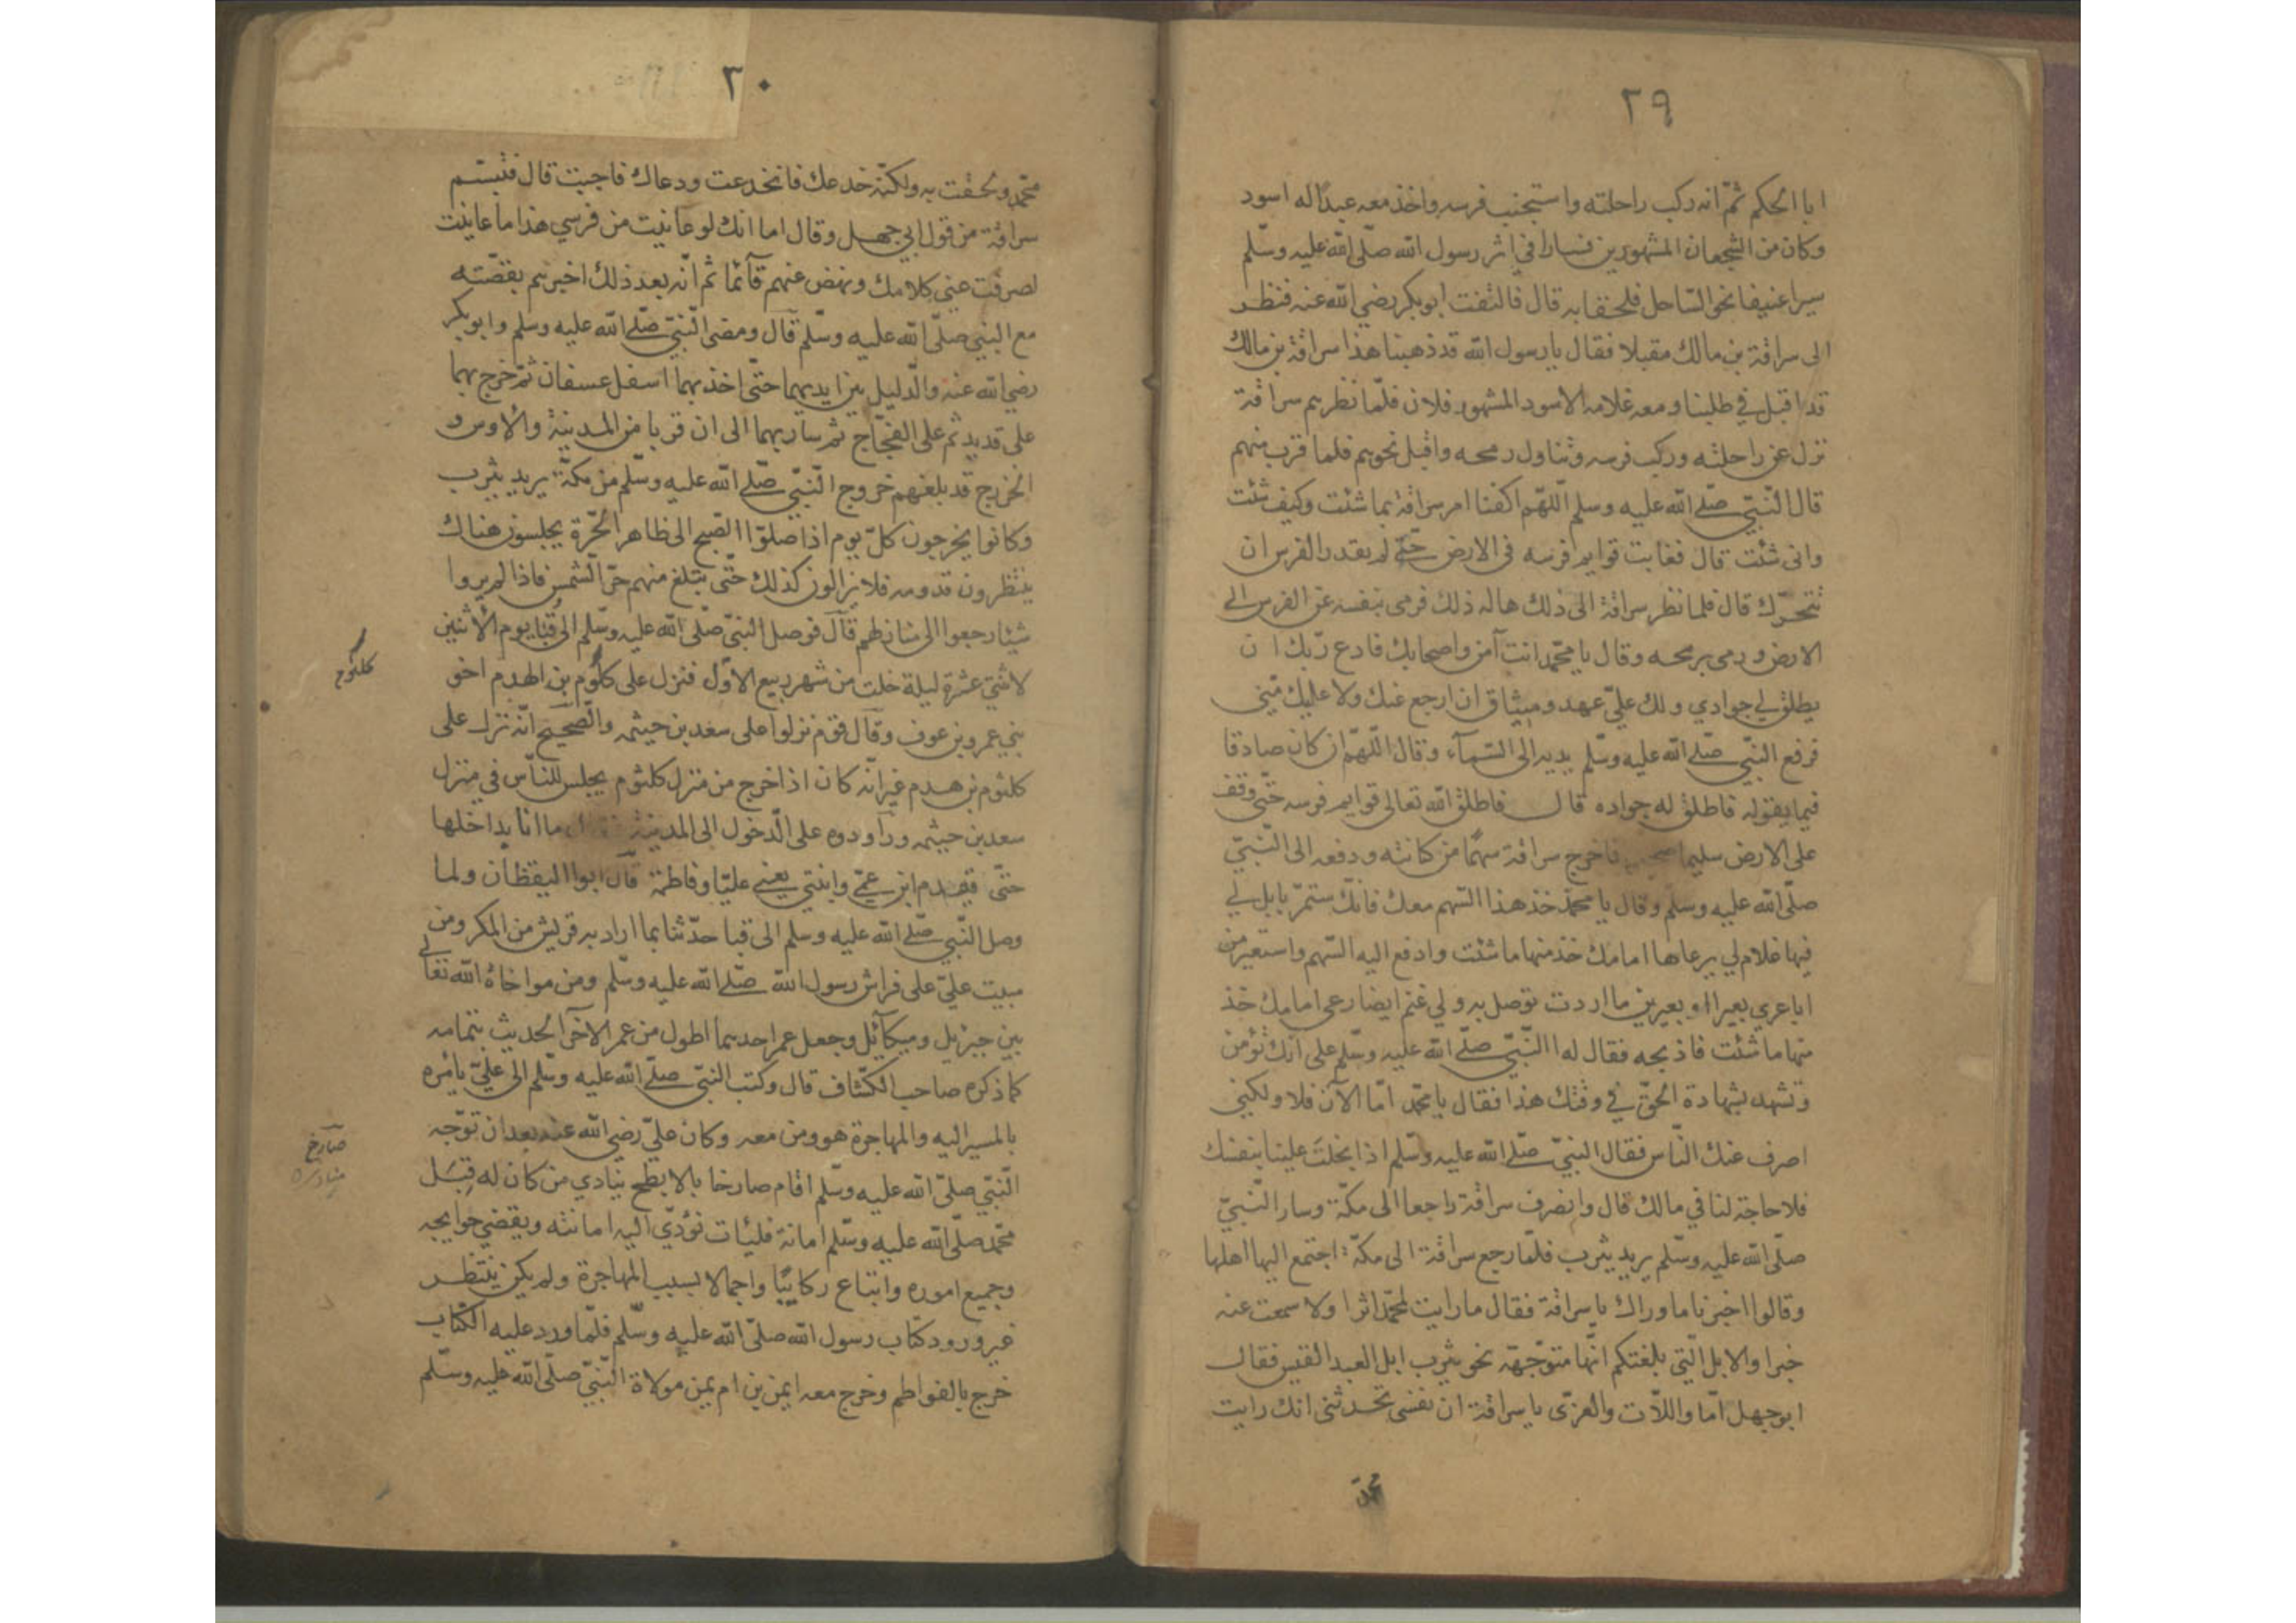 ٢٩
ابا الحكم ثمّ انه ركب راحلته واستجنب فرسه واخذ معه عبدًا له اسود
وكان من الشجعان المشهورين فسارا في اثر رسول الله صلّى الله عليه وسلّم
سيرا عنيفا نحو السّاحل فلحقا به قال فالتفت ابوبكر رضي الله عنه فنظر
الى سراقة بن مالك مقبلا فقال يا رسول الله قد ذهبنا هذا سراقة بن مالك
قد اقبل في طلبنا ومعه غلامه الاسود المشهور فلان فلمّا نظرهم سراقة
نزل عن راحلته وركب فرسه وتناول رمحه واقبل نحوهم فلما قرب منهم
قال النّبيّ صلّى الله عليه وسلم اللّهمّ اكفنا امر سراقة بما شئت وكيف شئت
وانى شئت قال فغابت قوايم فرسه فى الارض حتّى لم يقدر الفرس ان
تتحرّك قال فلما نظر سراقة الى ذلك هاله ذلك فرمى بنفسه عن الفرس الى
الارض ورمى برمحه وقال يا محمّد انت آمن واصحابك فادع ربّك ان
يطلق لي جوادي ولك عليّ عهد وميثاق ان ارجع عنك ولا عليك منّي
فرفع النبّي صلّى الله عليه وسلّم يديه الى السّمآء وقال اللّهمّ ان كان صادقا
فيما يقوله فاطلق له جواده قال فاطلق الله تعالى قوايم فرسه حتّى وقف
على الارض سليما فاخرج سراقة سهمًا من كنانته ودفعه الى النّبيّ
صلّى الله عليه وسلّم وقال يا محمّد خذ هذا السّهم معك فانّك ستمرّ بابل لي
فيها غلام لي يرعاها امامك خذ منها ما شئت وادفع اليه السّهم واستعير من
اباعري بعيرا او بعيرين ما اردت توصل به ولي غنم ايضا رعي امامك خذ
منها ما شئت فاذبحه فقال له النّبيّ صلّى الله عليه وسلّم على انّك تؤمن
وتشهد بشهادة الحقّ في وقتك هذا فقال يا محمّد امّا الآن فلا ولكني
اصرف عنك النّاس فقال النبيّ صلّى الله عليه وسلّم اذا بخلت علينا بنفسك
فلا حاجة لنا في مالك قال وانصرف سراقة راجعا الى مكّة وسار النّبيّ
صلّى الله عليه وسلّم يريد يثرب فلمّا رجع سراقة الى مكّة اجتمع اليها اهلها
وقالوا اخبرنا ما وراك يا سراقة فقال ما رايت لمحمّد اثرا ولا سمعت عنه
خبرا والابل الّتي بلغتكم انّها متوّجهه نحو يثرب ابل العبد القيس فقال
ابوجهل امّا واللاّت والعزّى يا سراقة ان نفسى تحدثنى انك رايت
محمّد
٣٠
محمّد ولحقت به ولكنّه خدعك فانخدعت ودعاك فاجبت قال فتبسّم
سراقة من قول ابي جهل وقال اما انك لو عاينت من فرسي هذا ما عاينت
لصرفت عني كلامك ونهض عنهم قآئما ثم انّه بعد ذلك اخبرهم بقصّته
مع النبيّ صلّى الله عليه وسلّم قال ومضى النّبيّ صلّى الله عليه وسلم وابوبكر
رضي الله عنه والّدليل بين ايديهما حتّى اخذ بهما اسفل عسفان ثمّ خرج بهما
على قديد ثم على الفجّاج ثم سار بهما الى ان قربا من المدينة والاوس و
الخزرج قد بلغهم خروج النّبيّ صلّى الله عليه وسلّم من مكّة يريد يثرب
وكانوا يخرجون كلّ يوم اذا صلوّا الصّبح الى ظاهر الحّرة يجلسون هناك
ينتظرون قدومه فلا يزالون كذلك حتّى يتلغ منهم حرّ الشّمس فاذا لم يروا
شيئا رجعوا الى منازلهم قال فوصل النبيّ صلّى الله عليه وسلّم الى قبا يوم الأثنين
لاثنتى عشرة ليلة خلت من شهر ربيع الاوّل فنزل على كلوم بن الهدم اخو
كلثوم
بني عمرو بن عوف وقال قوم نزلوا على سعد بن خيثمه والصّحيح انّه نزل على
كلثوم بن هدم غير انّه كان اذا خرج من منزل كلثوم يجلس للنّاس في منزل
سعد بن خيثمه وراودوه على الّدخول الى المدينة ما انا بداخلها
حتّى يقدم ابن عمّي وابنتي يعني عليّا وفاطمة قال ابوا اليقظان ولما
وصل النّبيّ صلّى الله عليه وسلم الى قبا حدّثنا بما اراد به قريش من المكر ومن
مبيت عليّ على فراش رسول الله صلّى الله عليه وسلّم ومن مواخاة الله تعالى
بين جبريل وميكآئيل وجعل عمر احدهما اطول من عمر الاخر الحديث بتمامه
كما ذكره صاحب الكشّاف قال وكتب النبيّ صلّى الله عليه وسّلم الى عليّ يأمره
بالمسير اليه والمهاجرة هو ومن معه وكان عليّ رضي الله عنه بعد ان توّجه
النّبيّ صلّى الله عليه وسلّم اقام صارخا بالابطح ينادي من كان له قبل
صارخ
محمّد صلّى الله عليه وسلّم امانة فليات نؤدّي اليه امانته ويقضي حوايجه
وجميع اموره وابتاع ركايبًا واجمالا بسبب المهاجرة ولم يكن ينتظر
غير ورود كتاب رسول الله صلّى الله عليه وسلّم فلمّا ورد عليه الكتاب
خرج بالفواطم وخرج معه ايمن بن ام يمن مولاة النّبيّ صلّى الله عليه وسلّم